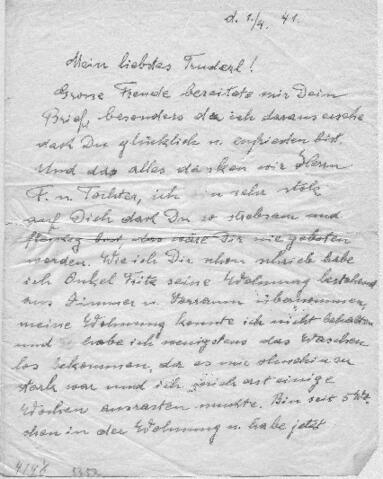 d. 1./4. 41.
Mein liebstes Truderl!
Grosse Freude bereitete mir Dein
Brief, besonders da ich daraus ersehe
daß Du glücklich u. zufrieden bist.
Und das alles danken wir Herrn
F. u. Tochter, ich bin sehr stolz
auf Dich daß Du so strebsam und
fleissig bist, das wäre Dir nie geboten
werden. Wie ich Dir schon schrieb habe
ich Onkel Fritz seine Wohnung bestehend
aus Zimmer u. Vorraum übernommen,
meine Wohnung konnte ich nicht behalten
und habe ich wenigstens das Waschen
los bekommen, da es mir ohnehin zu
stark war und ich mich erst einige
Wochen ausrasten musste. Bin seit 5 Wo
chen in der Wohnung u. habe jetzt